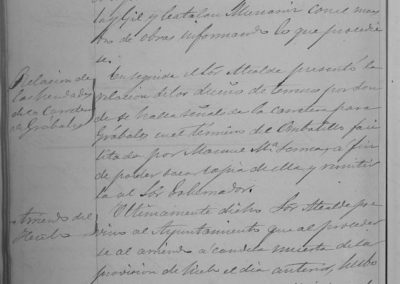 y Gil y Catalan Munarir con el maes
tro de obras informando lo que procedie
se.
Relacion de
las heredades
de la Carretera
de Grábalos
En seguida el Sor. Alcalde presentó la
relacion de los dueños de terreno por don
de se halla señalada la carretera para
Grábalos en el término de Ambalillo fa
litada por Manuel Mª a fin
de poder sacar copia de ella y remitir
la al Sor. Gobernador.
Arriendo del
Hielo
Ultimamente dicho Sor. Alcalde pre
vino al Ayuntamiento que al proceder
se al arriendo a candela muerta de la
provision de hielo el dia anterior, hubo